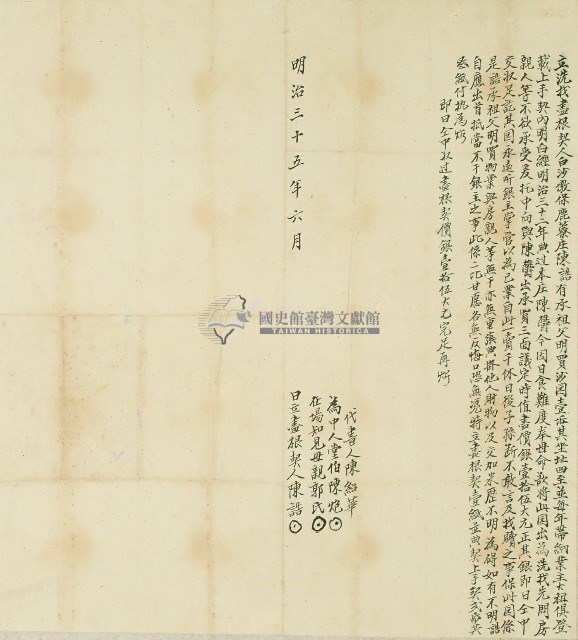 立洗找盡根契人白沙墩保鹿寮庄陳誥有承祖父明買沙園壹派其坐址四至並每年帶納業主大租俱登
載上手契內明白經明治三十二年典过本庄陳膋今因日食難度奉母命欲將此園出為洗找先問房
親人等不欲承受後托中向與陳膋出承買三面議定時值盡價銀壹拾伍大元正其銀即日仝中
交收足訖其園永遠听銀主掌管以為己業自此一賣千休日後子孫断不敢言及找贖之事保此園係
是誥承祖父明買物業與房親人等無干亦無重張典掛他人財物以及交加來歷不明為碍如有不明誥
自應出首抵當不干銀主之事此係二比甘愿各無反悔口恐無憑特立盡根契壹紙並典契上手契弍紙共
叁紙付执為炤
即日仝中収过盡根契價銀壹拾伍大元完足再炤
明治三十五年六月
代書人陳紹華
為中人堂伯陳炮
在場知見母親郭氏
日立盡根契人陳誥
國史館臺灣文獻館
TAIWAN HISTORICA